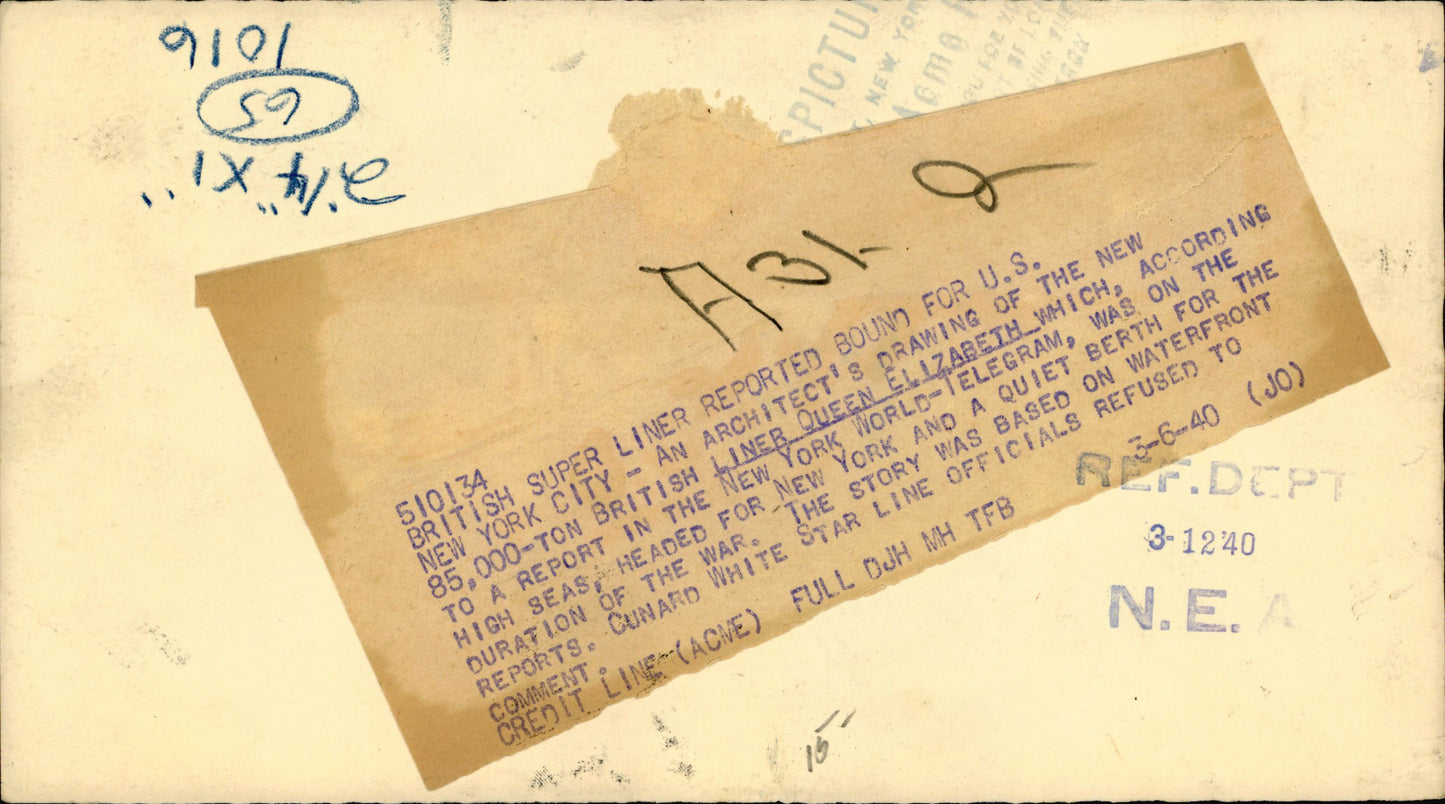 1016
65
2 1/4" X 1"
SPICTU
NEW YOR
Acme
A31-
510134
BRITISH SUPER LINER REPORTED BOUND FOR U.S.
NEW YORK CITY - AN ARCHITECT'S DRAWING OF THE NEW
85,000-TON BRITISH LINER QUEEN ELIZABETH WHICH, ACCORDING
TO A REPORT IN THE NEW YORK WORLD-TELEGRAM, WAS ON THE
HIGH SEAS, HEADED FOR NEW YORK AND A QUIET BERTH FOR THE
DURATION OF THE WAR. THE STORY WAS BASED ON WATERFRONT
REPORTS. CUNARD WHITE STAR LINE OFFICIALS REFUSED TO
COMMENT.
CREDIT LINE (ACME) FULL DJH MH TFB 3-6-40 (JO)
REF. DEPT
3-12 40
N.E.A